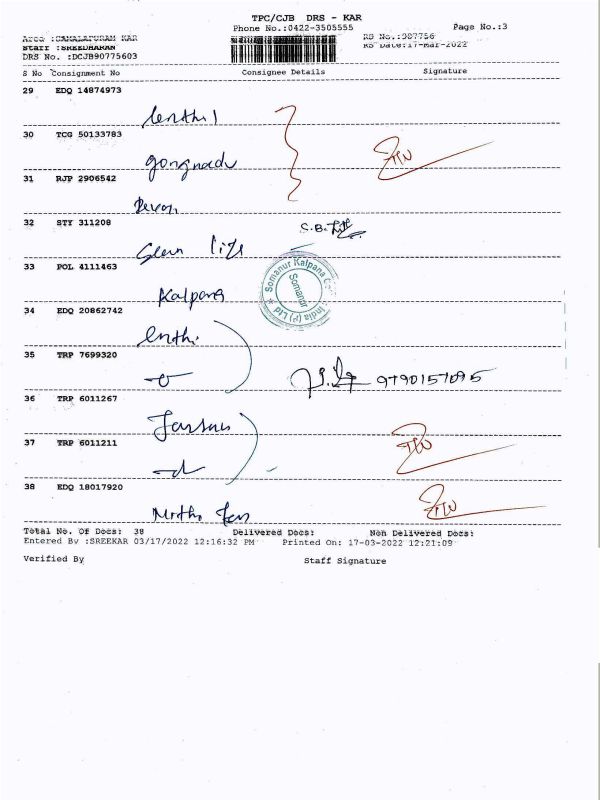 TPC/CJB DRS - KAR
Phone No.:0422-3505555
Page No.:3
Area :SAMALAPURAM KAR
RS No.:987756
Staff :SREEDHARAN
RS Date:17-Mar-2022
DRS No. :DCJB90775603
S No Consignment No Consignee Details Signature
29 EDQ 14874973
Senthil
30 TCG 50133783
31 RJP 2906542
32 STY 311208
S.B.
33 POL 4111463
Kalpana
Somanur Kalpana
India (P) Ltd
Somanur
34 EDQ 20862742
35 TRP 7699320
9790157095
36 TRP 6011267
37 TRP 6011211
38 EDQ 18017920
Total No. Of Docs: 38 Delivered Docs: Non Delivered Docs:
Entered By :SREEKAR 03/17/2022 12:16:32 PM Printed On: 17-03-2022 12:21:09
Verified By Staff Signature